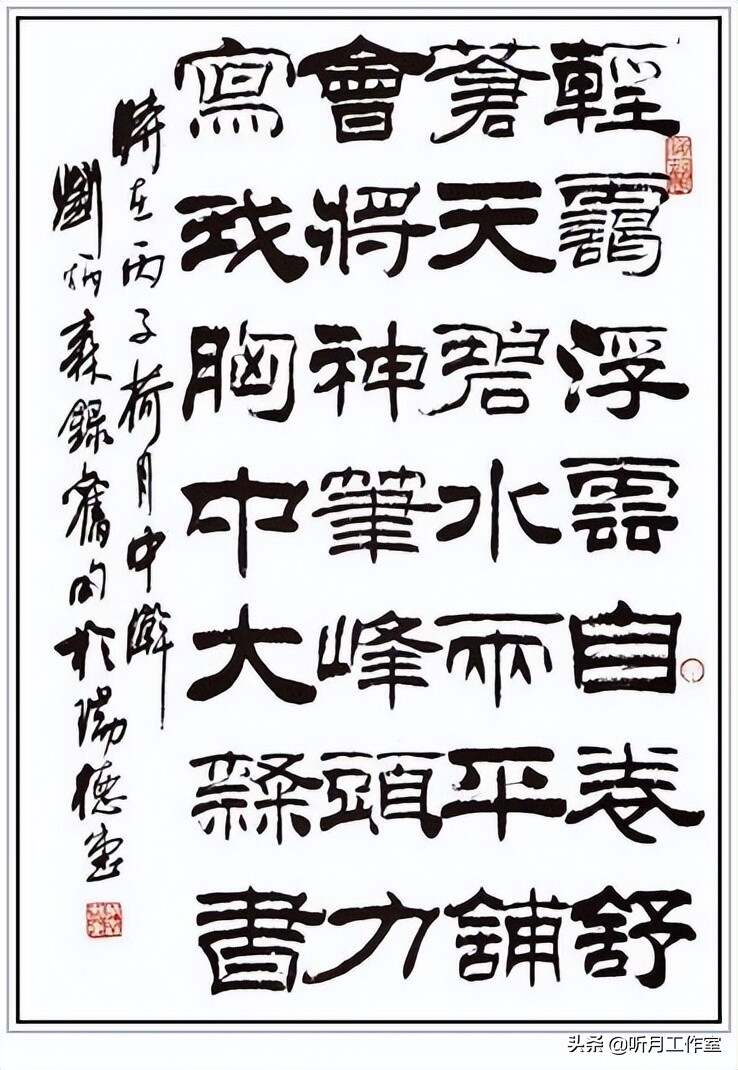 輕靄浮雲自卷舒
蒼天碧水兩平舖
會將神筆峰頭力
寫我胸中大隸書
時在丙子荷月中澣
劉炳森錄舊句於瑞德
头条 @听月工作室